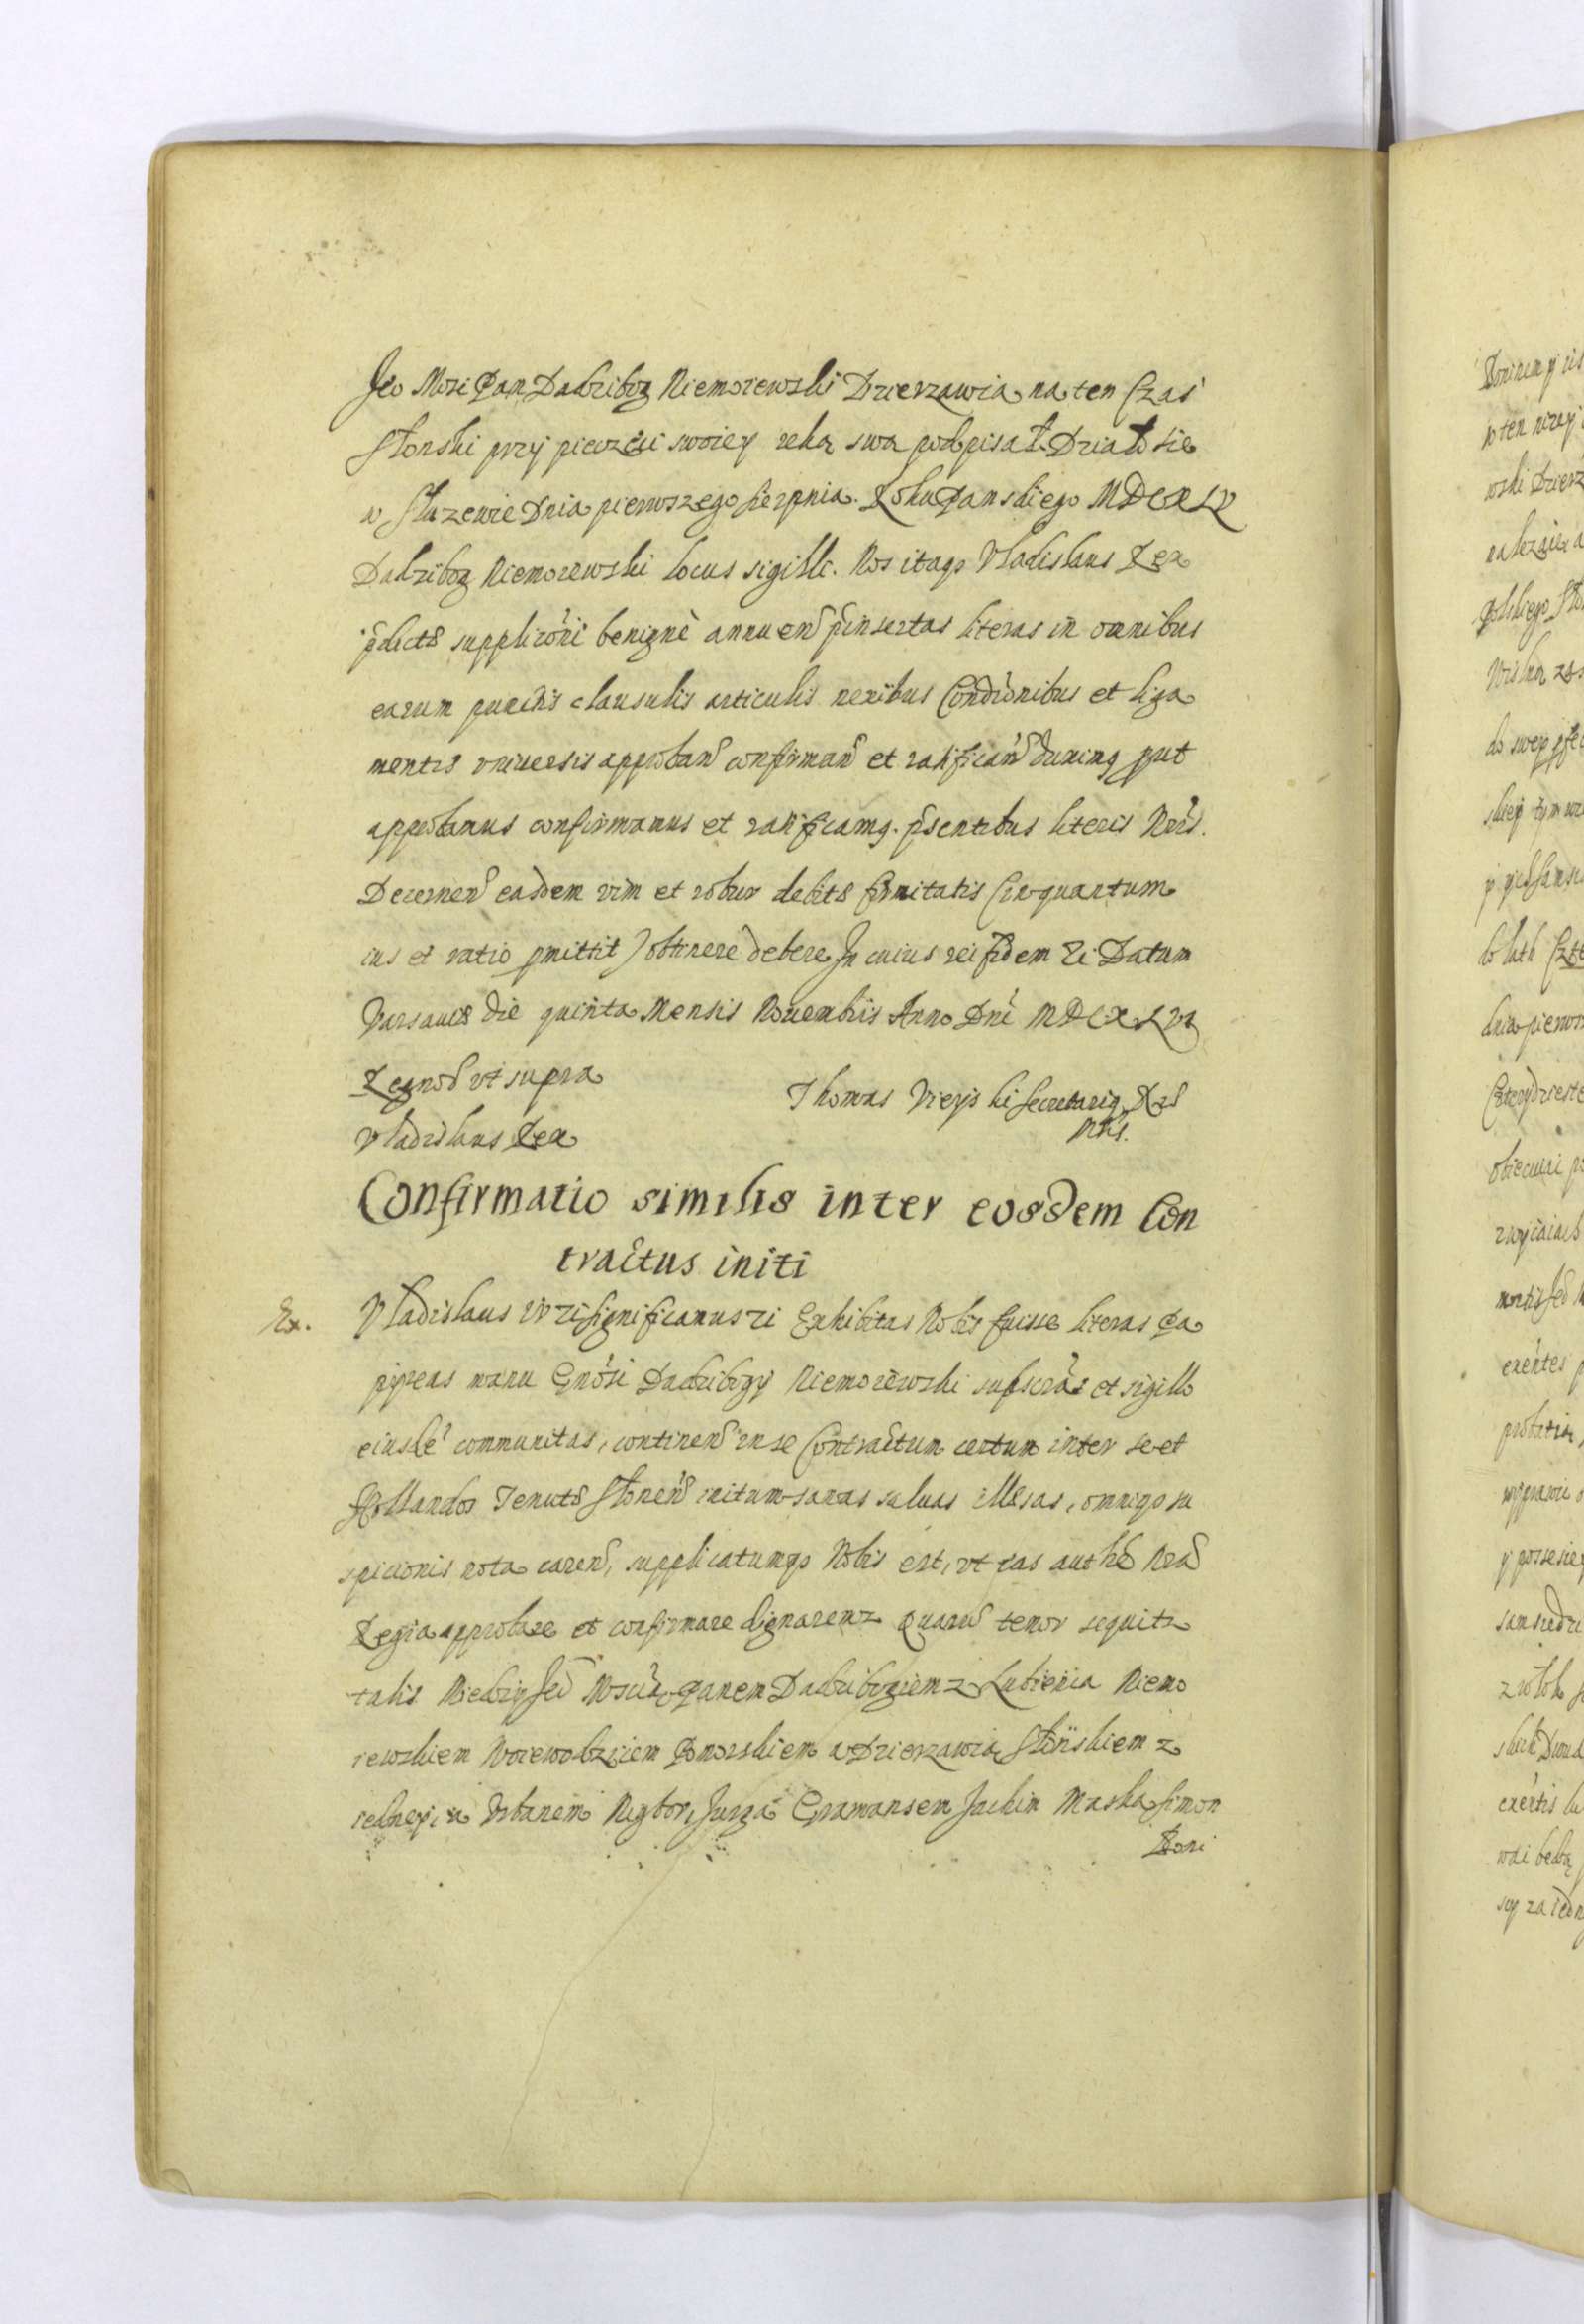 Jeo Mosc Pan Dadzibog Niemoiewski Dzierzawca na ten Czas
Słonski przy pieczęci swoiey reką swą podpisał. Działo sie
w Słuzewie Dnia pierwszego Sierpnia. Roku Panskiego MDCXLV
Dadzibog Niemoiewski Locus sigilli. Nos itaqȝ Vladislaus Rex
p̃dictæ supplicõni benignè annuen̄ p̃insertas literas in omnibus
earum punctis clausulis articulis nexibus Condicõnibus et liga
mentis vniuersis approban̄ confirman̄ et ratifican̄ duximꝰ put
approbamus confirmamus et ratificamꝰ. p̃sentibus literis Nr̃is.
Decernen̄ easdem vim et robur debitæ firmitatis (in quantum
ius et ratio pmittit) obtinere debere In cuius rei fidem ꝛc Datum
Varsauiæ die quinta Mensis Nouembris Anno Dñi MDCXLVI
Regnoȓ vt supra
Thomas Vieyski Secretariꝰ Rȩ
Mtis.
Vladislaus Rex
Confirmatio similis inter eosdem Con
tractus initi
Ex.
Vladislaus IV ꝛc Significamus ꝛc Exhibitas Nobis fuisse literas Pa
pyreas manu Gnõsi Dadzibogy Niemoiewski subscr̃as et sigillo
eiusde͂ communitas, continen̄ in se Contractum certum inter se et
Hollandos Tenutæ Słonen̄ initum sanas saluas illæsas, omniqȝ su
spicionis nota caren̄, supplicatumqȝ Nobis est, vt eas authe͂ Nr̃a
Regia approbare et confirmare dignaremur Quaru͂ tenor sequitr
talis Miedzy Je͂ Mscią Panem Dadzibogiem z Lubieńca Niemo
iewskiem Woiewodzicem Pomorskiem a Dzierzawcą Słońskiem z
iedney, a Urbanem Jurga Gramansem Jachim Maska Simon
Boni